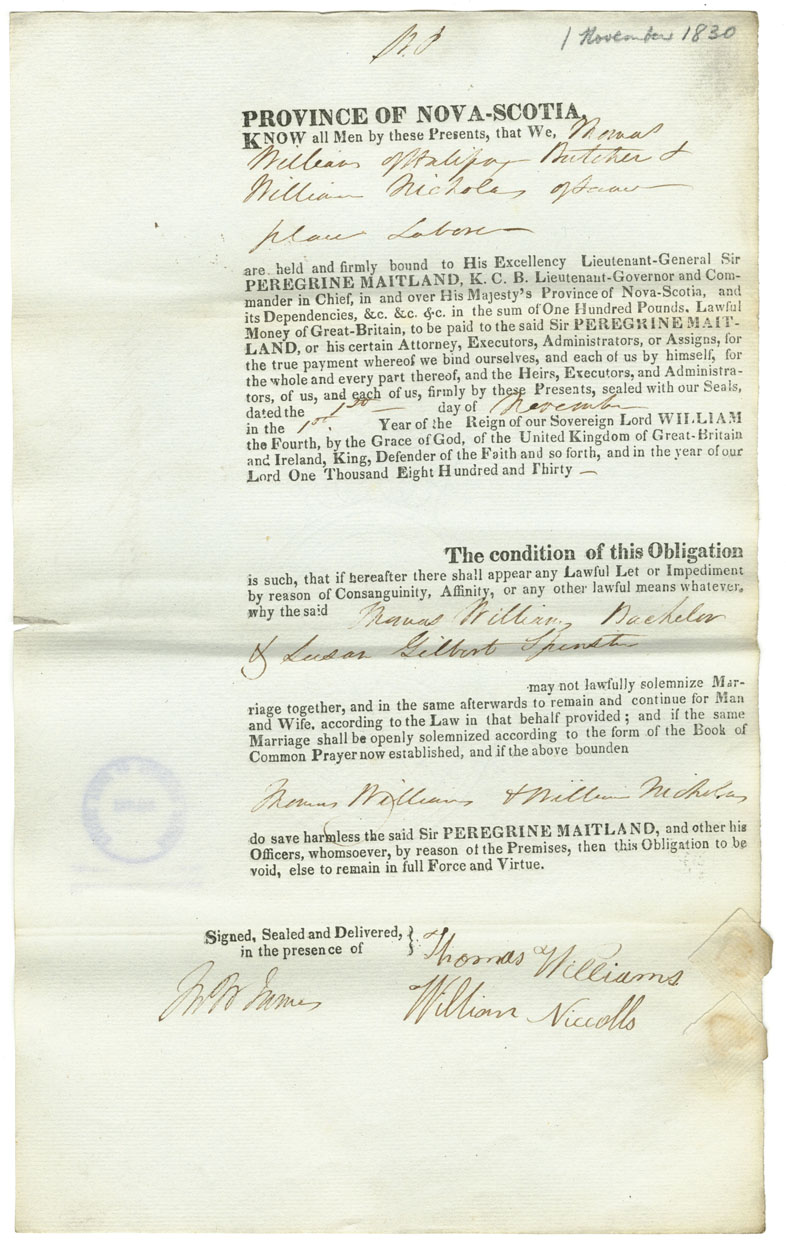 1 November 1830
PROVINCE OF NOVA-SCOTIA,
KNOW all Men by these Presents, that We, Thomas
Williams of Halifax Butcher &
William Nicholas of same
place Labore
are held and firmly bound to His Excellency Lieutenant-General Sir
PEREGRINE MAITLAND, K. C. B. Lieutenant-Governor and Com-
mander in Chief, in and over His Majesty's Province of Nova-Scotia, and
its Dependencies, &c. &c. &c. in the sum of One Hundred Pounds. Lawful
Money of Great-Britain, to be paid to the said Sir PEREGRINE MAIT-
LAND, or his certain Attorney, Executors, Administrators, or Assigns, for
the true payment whereof we bind ourselves, and each of us by himself, for
the whole and every part thereof, and the Heirs, Executors, and Administra-
tors, of us, and each of us, firmly by these Presents, sealed with our Seals,
dated the 1st day of November
in the 1st. Year of the Reign of our Sovereign Lord WILLIAM
the Fourth, by the Grace of God, of the United Kingdom of Great-Britain
and Ireland, King, Defender of the Faith and so forth, and in the year of our
Lord One Thousand Eight Hundred and Thirty —
The condition of this Obligation
is such, that if hereafter there shall appear any Lawful Let or Impediment
by reason of Consanguinity, Affinity, or any other lawful means whatever,
why the said Thomas Williams Bachelor
& Susan Gilbert Spinster
may not lawfully solemnize Mar-
riage together, and in the same afterwards to remain and continue for Man
and Wife. according to the Law in that behalf provided; and if the same
Marriage shall be openly solemnized according to the form of the Book of
Common Prayer now established, and if the above bounden
Thomas Williams & William Nicholas
do save harmless the said Sir PEREGRINE MAITLAND, and other his
Officers, whomsoever, by reason of the Premises, then this Obligation to be
void, else to remain in full Force and Virtue.
Signed, Sealed and Delivered, }
in the presence of
Thomas Williams
James
William Niccolls